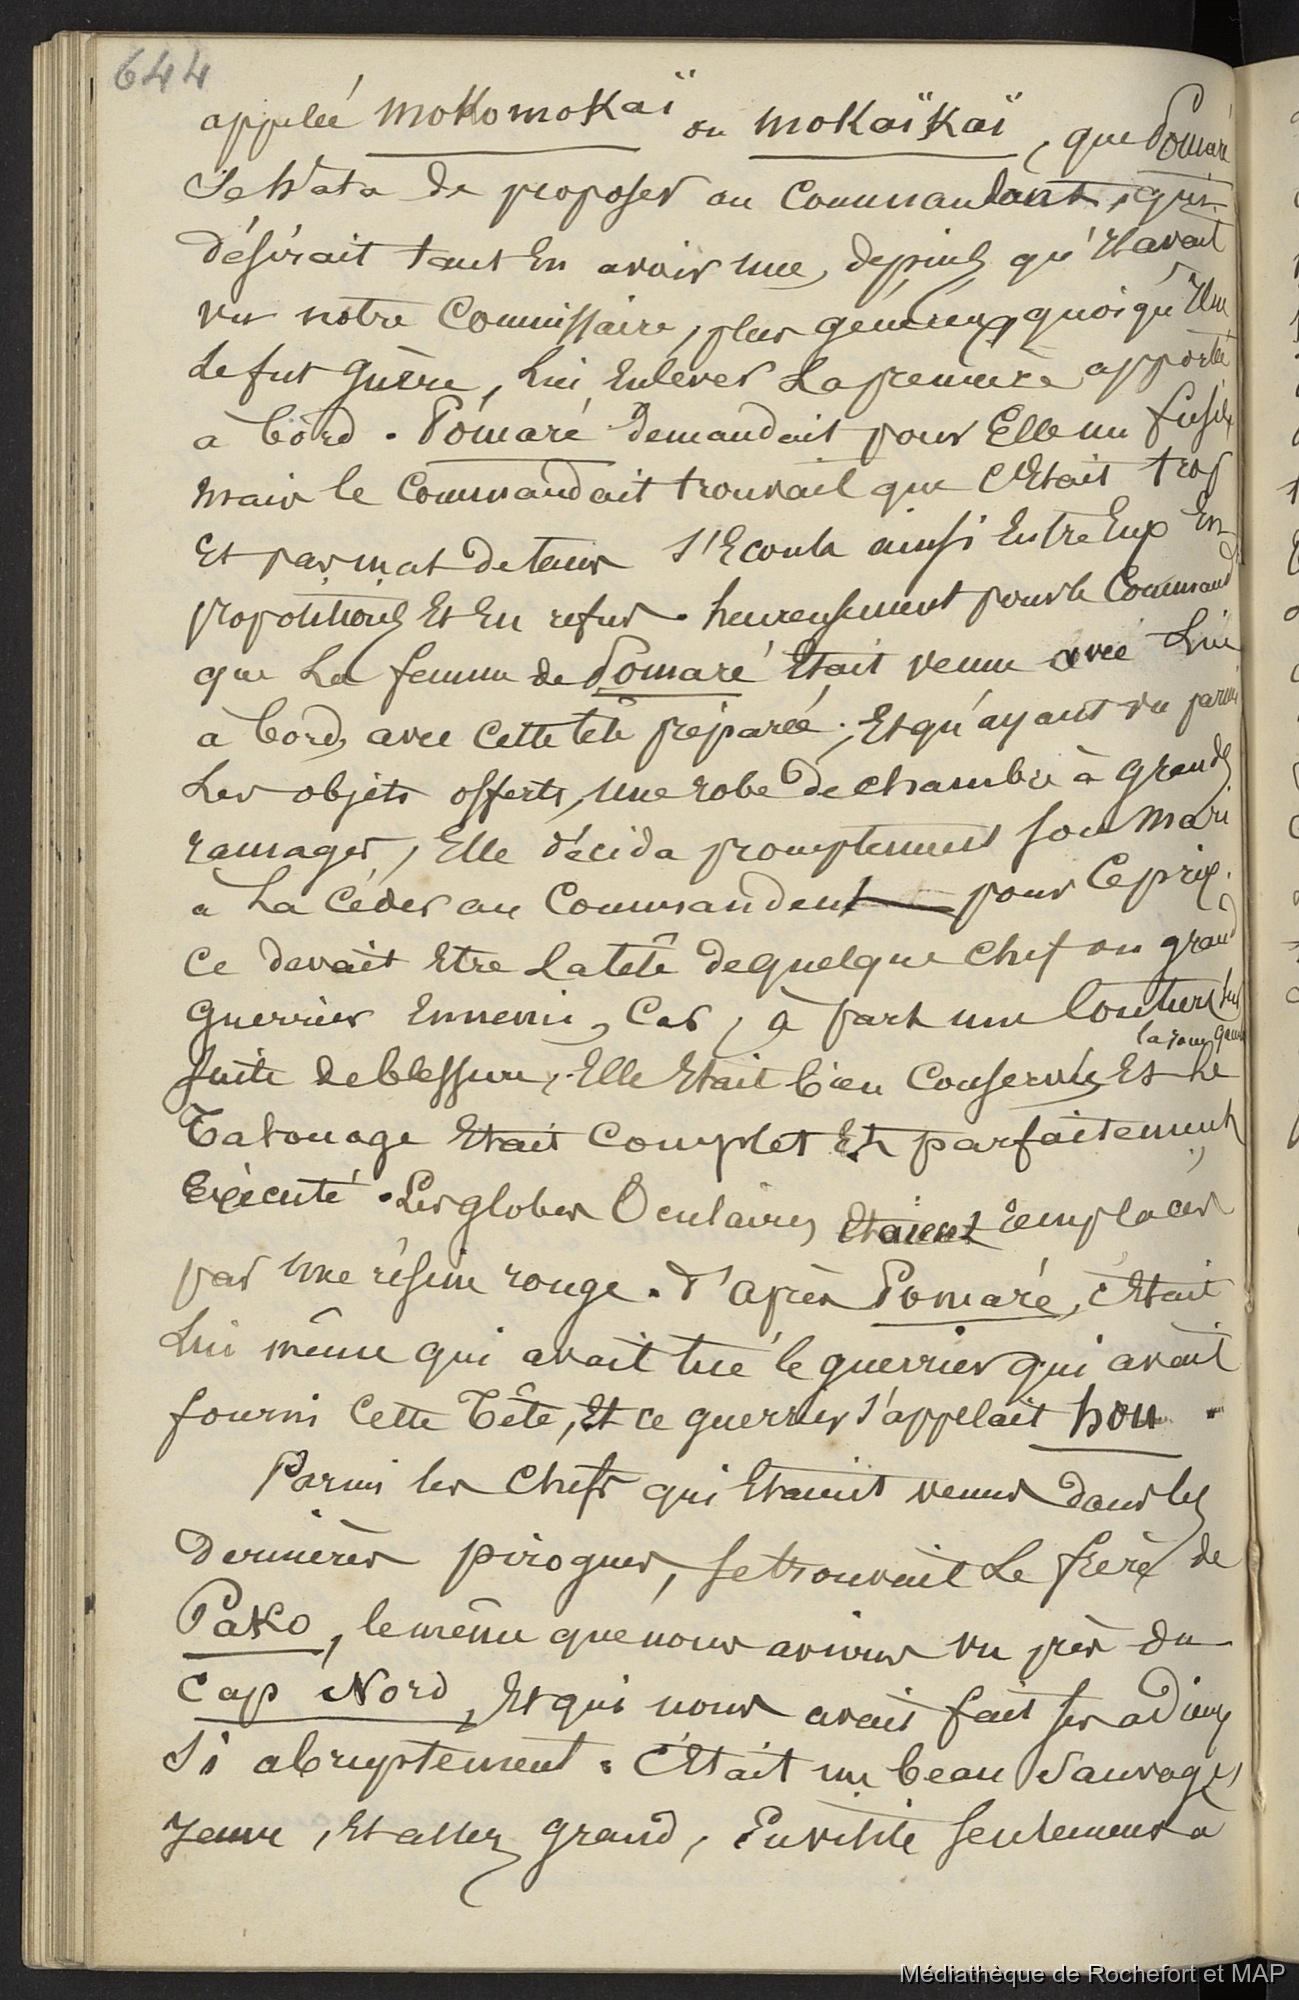 644
appelée mokomokaï ou mokaïkaï, que Pomaré
se hâta de proposer au Commandant, qui
désirait tant En avoir une, depuis qu'il avait
vu notre Commissaire, plus généreux, quoiqu'il ne
Le fut guère, Lui Enlever La première apportée
a bord. Pomaré demandait pour Elle un fusil,
mais le Commandait trouvait que C'Etait trop
Et pas mal de tems s'Ecoula ainsi Entre Eux En
propositions Et En refus. heureusement pour le Command
que La femme de Pomaré Etait venue avec Lui
à bord, avec cette tête préparée; Et qu'ayant vu parmi
Les objets offerts, une robe de chambre à grands
ramages, Elle décida promptement son mari
a La Céder au Commandent pour Ce prix.
Ce devait Etre La tête de quelque chef ou grand
Guerrier Ennemi, Car, à part une Couture sur
la joue gauche
suite de blessure, Elle Etait bien Conservée, Et Le
Tatouage Etait Complet Et parfaitement
Exécuté. Les globes Oculaires Etaient remplacés
par une résine rouge. d'après Pomaré, c'Etait
Lui même qui avait tué le guerrier qui avait
fourni Cette Tête, Et ce guerrier s'appelait hou.
Parmi les Chefs qui Etaient venus dans les
dernières pirogues, se trouvait Le frère de
Pako, le même que nous avions vu près du
Cap Nord, Et qui nous avait fait ses adieux
si abruptement. C'Etait un beau Sauvage,
Jeune, Et assez grand, seulement à
Médiathèque de Rochefort et MAP